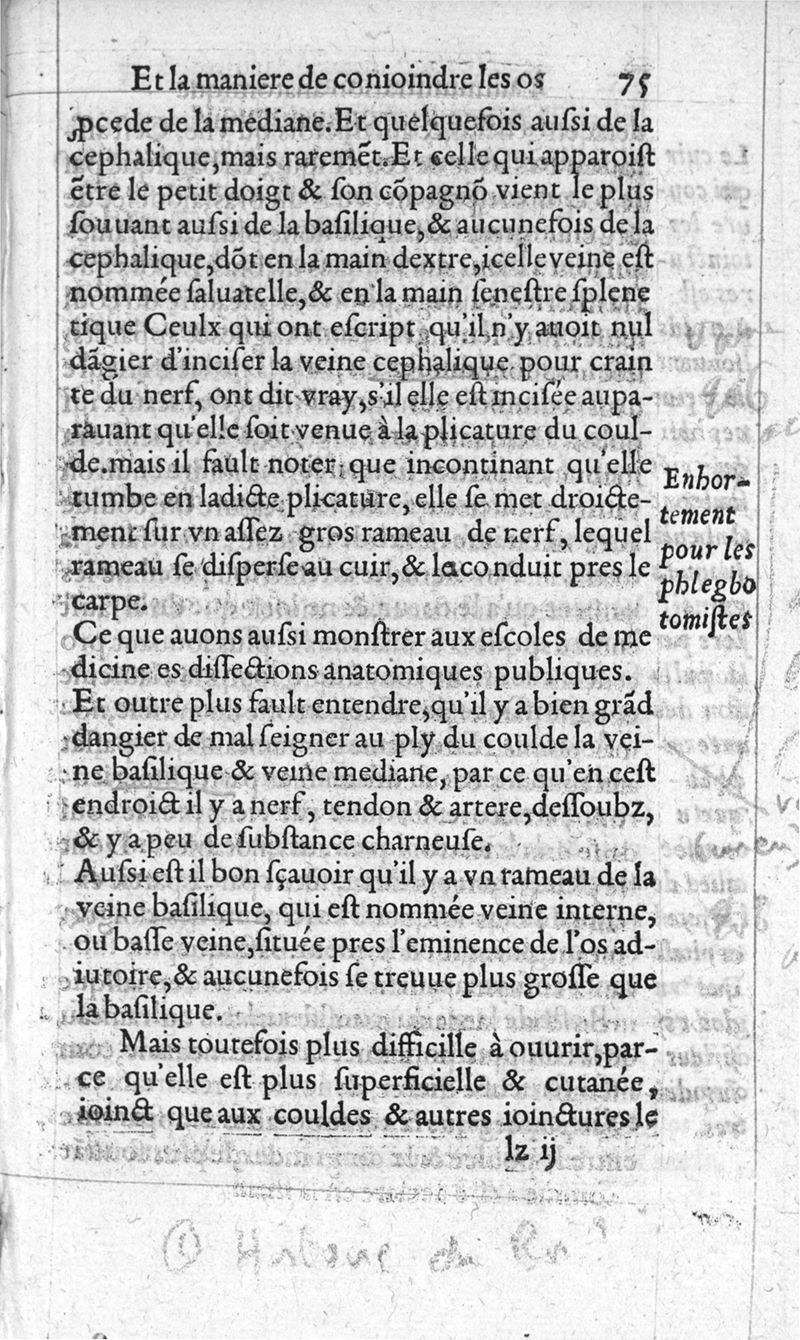 Et la maniere de conioindre les os 75
ꝓcede de la mediane. Et quelquefois auſsi de la
cephalique, mais raremẽt. Et celle qui apparoiſt
ẽtre le petit doigt & ſon cõpagnõ vient le plus
ſouuant auſsi de la baſilique, & aucunefois de la
cephalique, dõt en la main dextre, icelle veine eſt
nommée ſaluatelle, & en la main ſeneſtre ſplene
tique Ceulx qui ont eſcript qu'il n'y auoit nul
dãgier d'inciſer la veine cephalique pour crain
te du nerf, ont dit vray, s'il elle eſt inciſée aupa-
rauant qu'elle ſoit venue à la plicature du coul-
de. mais il fault noter que incontinant qu'elle
tumbe en ladicte plicature, elle ſe met droicte-
ment ſur vn aſſez gros rameau de nerf, lequel
rameau ſe diſperſe au cuir, & la conduit pres le
carpe.
Enhor-
tement
pour les
phlegbo
tomiſtes
Ce que auons auſsi monſtrer aux eſcoles de me
dicine es diſſections anatomiques publiques.
Et outre plus fault entendre, qu'il y a bien grãd
dangier de mal ſeigner au ply du coulde la vei-
ne baſilique & veine mediane, par ce qu'en ceſt
endroict il y a nerf, tendon & artere, deſſoubz,
& y a peu de ſubſtance charneuſe.
Auſsi eſt il bon ſçauoir qu'il y a vn rameau de la
veine baſilique, qui eſt nommée veine interne,
ou baſſe veine, ſituée pres l'eminence de l'os ad-
iutoire, & aucunefois ſe treuue plus groſſe que
la baſilique.
Mais toutefois plus difficille à ouurir, par-
ce qu'elle eſt plus ſuperficielle & cutanée,
ioinct que aux couldes & autres ioinctures le
lz ij